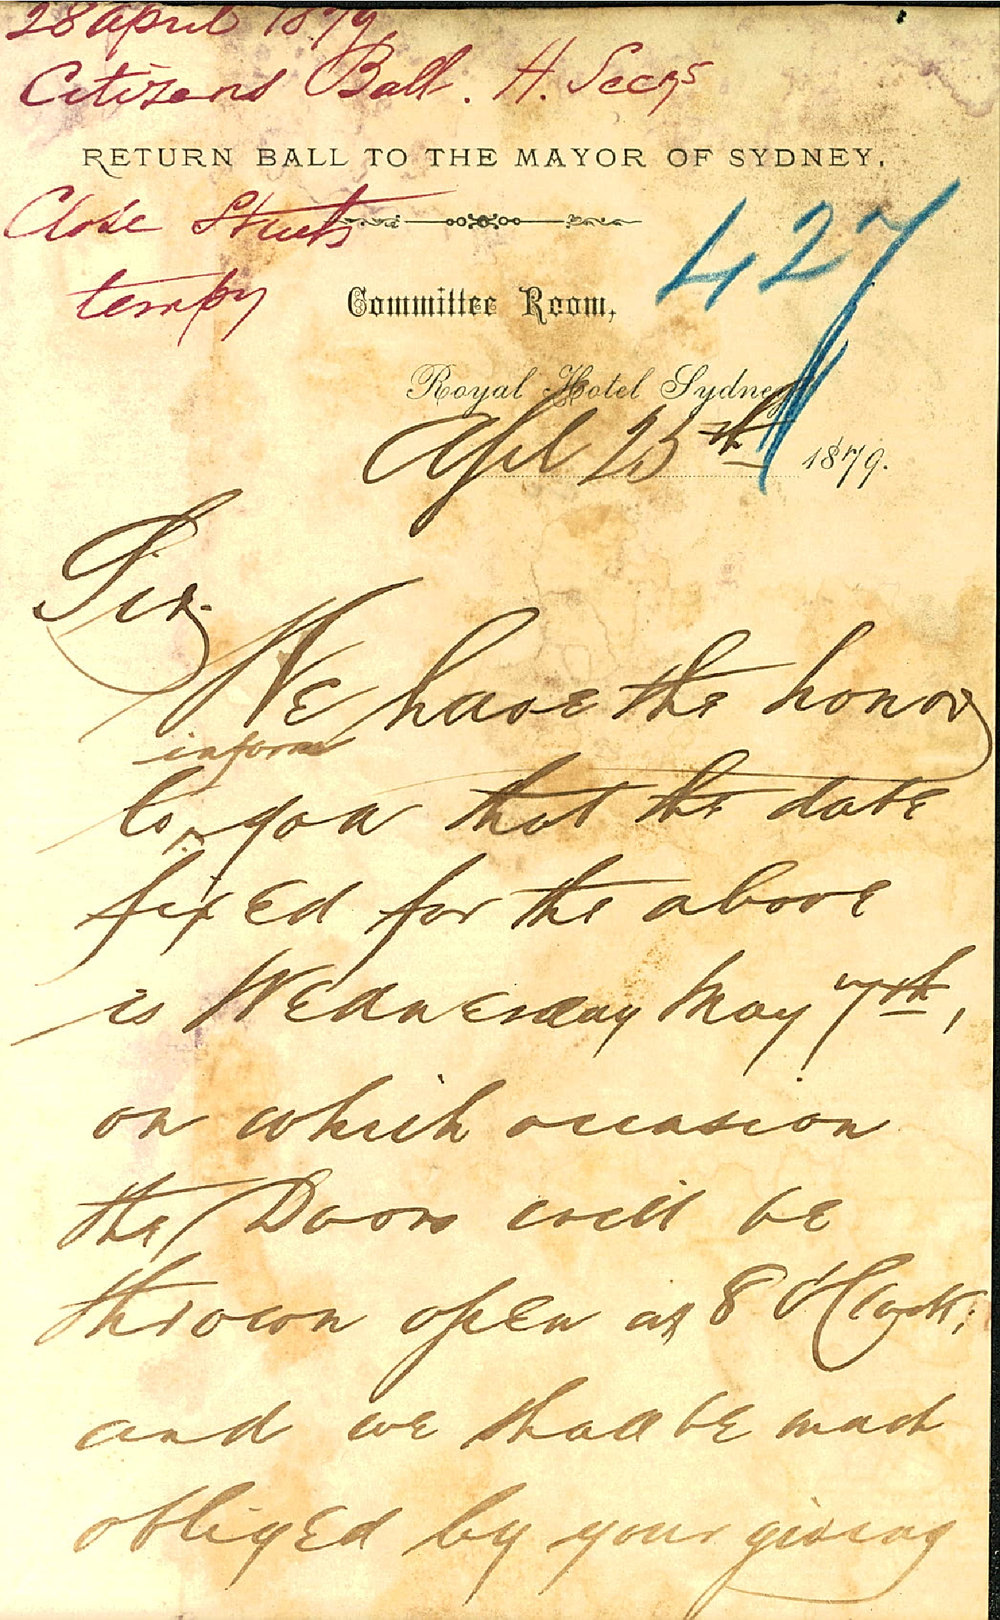 28 April 1879
Citizens Ball. H. Secys
RETURN BALL TO THE MAYOR OF SYDNEY,
Close Streets
tempy
427
Committee Room,
Royal Hotel Sydney
Apl 25th 1879.
Sir
We have the honor
inform
to ^ you that the date
fixed for the above
is Wednesday May 7th,
on which occasion
the Doors will be
thrown open at 8 O'Clock;
and we shall be much
obliged by your giving